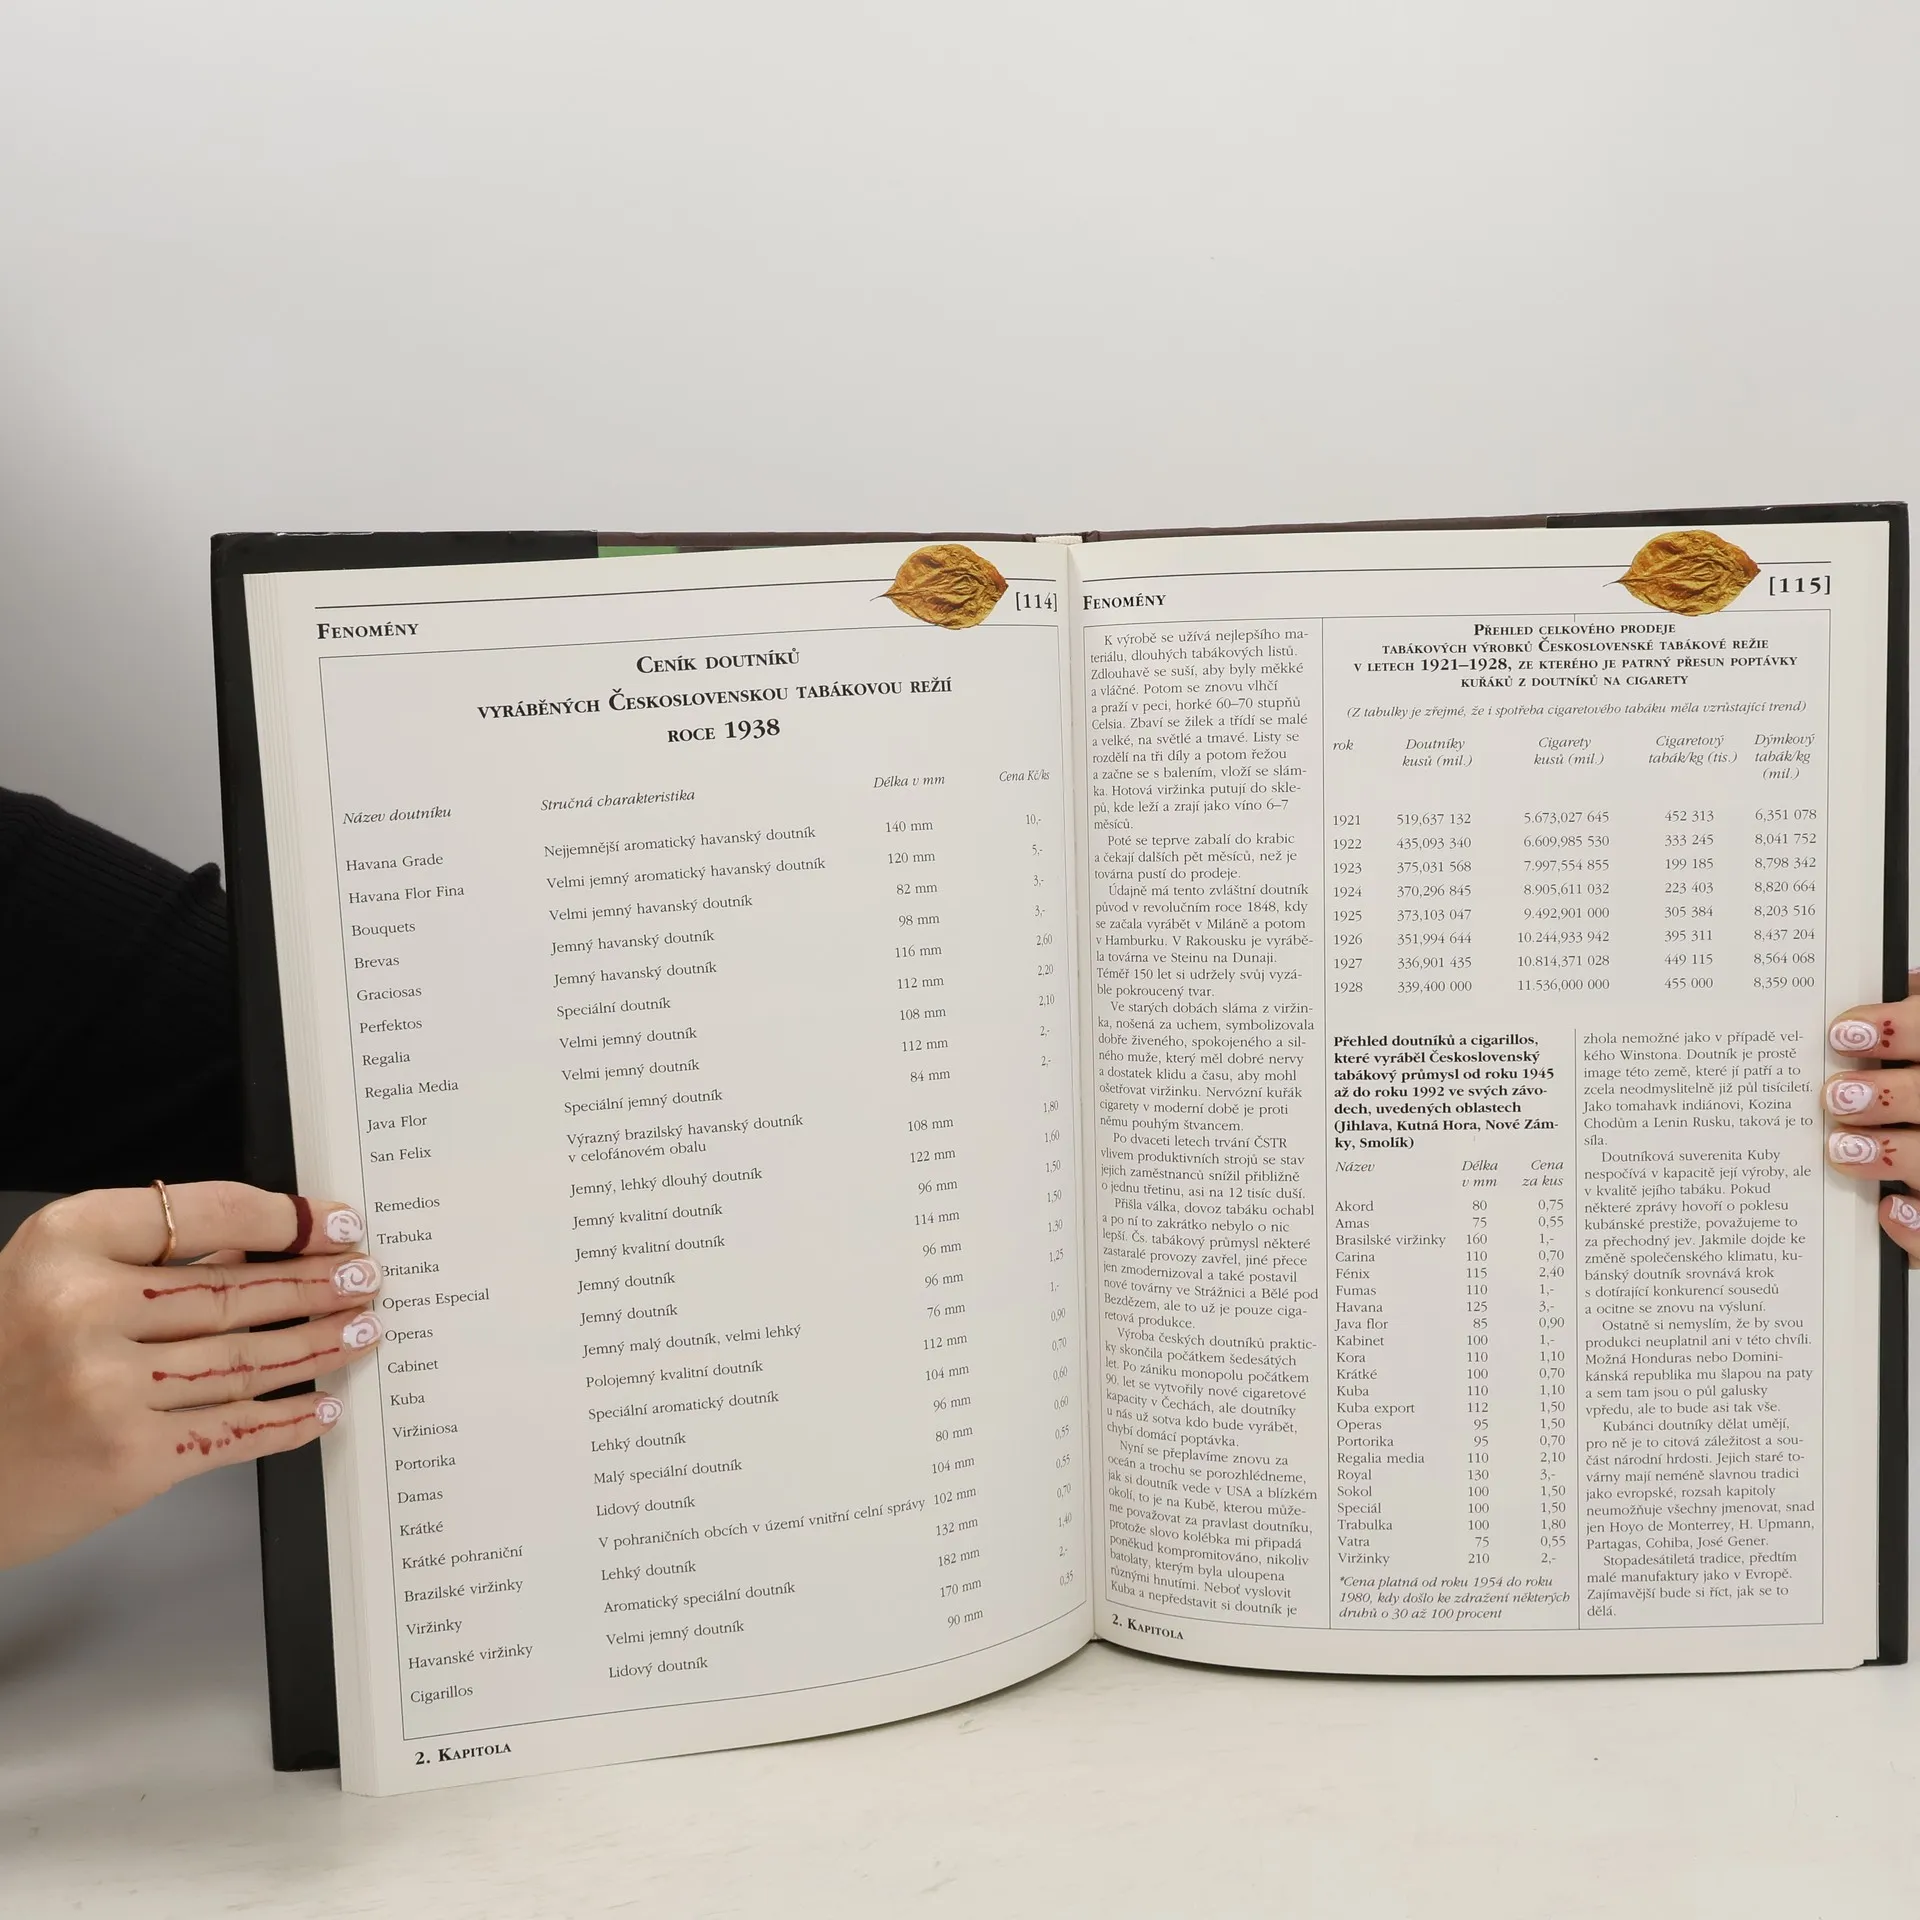 FENOMÉNY [114]
CENÍK DOUTNÍKŮ
VYRÁBĚNÝCH ČESKOSLOVENSKOU TABÁKOVOU REŽIÍ
ROCE 1938
Název doutníku Stručná charakteristika Délka v mm Cena Kč/ks
Havana Grade Nejjemnější aromatický havanský doutník 140 mm 10,-
Havana Flor Fina Velmi jemný aromatický havanský doutník 120 mm 5,-
Bouquets Velmi jemný havanský doutník 82 mm 3,-
Brevas Jemný havanský doutník 98 mm 3,-
Graciosas Jemný havanský doutník 116 mm 2,60
Perfektos Speciální doutník 112 mm 2,20
Regalia Velmi jemný doutník 108 mm 2,10
Regalia Media Velmi jemný doutník 112 mm 2,-
Java Flor Speciální jemný doutník 84 mm 2,-
San Felix Výrazný brazilský havanský doutník
v celofánovém obalu 108 mm 1,80
Remedios Jemný, lehký dlouhý doutník 122 mm 1,60
Trabuka Jemný kvalitní doutník 96 mm 1,50
Britanika Jemný kvalitní doutník 114 mm 1,50
Operas Especial Jemný doutník 96 mm 1,30
Operas Jemný doutník 96 mm 1,25
Cabinet Jemný malý doutník, velmi lehký 76 mm 1,-
Kuba Polojemný kvalitní doutník 112 mm 0,90
Viržiniosa Speciální aromatický doutník 104 mm 0,70
Portorika Lehký doutník 96 mm 0,60
Damas Malý speciální doutník 80 mm 0,60
Krátké Lidový doutník 104 mm 0,55
Krátké pohraniční V pohraničních obcích v území vnitřní celní správy 102 mm 0,55
Brazilské viržinky Lehký doutník 132 mm 0,70
Viržinky Aromatický speciální doutník 182 mm 1,40
Havanské viržinky Velmi jemný doutník 170 mm 2,-
Cigarillos Lidový doutník 90 mm 0,35
2. KAPITOLA
FENOMÉNY [115]
K výrobě se užívá nejlepšího ma-
teriálu, dlouhých tabákových listů.
Zdlouhavě se suší, aby byly měkké
a vláčné. Potom se znovu vlhčí
a praží v peci, horké 60–70 stupňů
Celsia. Zbaví se žilek a třídí se malé
a velké, na světlé a tmavé. Listy se
rozdělí na tři díly a potom řežou
a začne se s balením, vloží se slám-
ka. Hotová viržinka putují do skle-
pů, kde leží a zrají jako víno 6–7
měsíců.
Poté se teprve zabalí do krabic
a čekají dalších pět měsíců, než je
továrna pustí do prodeje.
Údajně má tento zvláštní doutník
původ v revolučním roce 1848, kdy
se začala vyrábět v Miláně a potom
v Hamburku. V Rakousku je vyrábě-
la továrna ve Steinu na Dunaji.
Téměř 150 let si udržely svůj vyzá-
ble pokroucený tvar.
Ve starých dobách sláma z viržin-
ka, nošená za uchem, symbolizovala
dobře živeného, spokojeného a sil-
ného muže, který měl dobré nervy
a dostatek klidu a času, aby mohl
ošetřovat viržinku. Nervózní kuřák
cigarety v moderní době je proti
němu pouhým štvancem.
Po dvaceti letech trvání ČSTR
vlivem produktivních strojů se stav
jejich zaměstnanců snížil přibližně
o jednu třetinu, asi na 12 tisíc duší.
Přišla válka, dovoz tabáku ochabl
a po ní to zakrátko nebylo o nic
lepší. Čs. tabákový průmysl některé
zastaralé provozy zavřel, jiné přece
jen zmodernizoval a také postavil
nové továrny ve Strážnici a Bělé pod
Bezdězem, ale to už je pouze ciga-
retová produkce.
Výroba českých doutníků praktic-
ky skončila počátkem šedesátých
let. Po zániku monopolu počátkem
90. let se vytvořily nové cigaretové
kapacity v Čechách, ale doutníky
u nás už sotva kdo bude vyrábět,
chybí domácí poptávka.
Nyní se přeplavíme znovu za
oceán a trochu se porozhlédneme,
jak si doutník vede v USA a blízkém
okolí, to je na Kubě, kterou může-
me považovat za pravlast doutníku,
protože slovo kolébka mi připadá
poněkud kompromitováno, nikoliv
batolaty, kterým byla uloupena
různými hnutími. Neboť vyslovit
Kuba a nepředstavit si doutník je
2. KAPITOLA
PŘEHLED CELKOVÉHO PRODEJE
TABÁKOVÝCH VÝROBKŮ ČESKOSLOVENSKÉ TABÁKOVÉ REŽIE
V LETECH 1921–1928, ZE KTERÉHO JE PATRNÝ PŘESUN POPTÁVKY
KUŘÁKŮ Z DOUTNÍKŮ NA CIGARETY
(Z tabulky je zřejmé, že i spotřeba cigaretového tabáku měla vzrůstající trend)
rok Doutníky Cigarety Cigaretový Dýmkový
kusů (mil.) kusů (mil.) tabák/kg (tis.) tabák/kg
(mil.)
1921 519,637 132 5.673,027 645 452 313 6,351 078
1922 435,093 340 6.609,985 530 333 245 8,041 752
1923 375,031 568 7.997,554 855 199 185 8,798 342
1924 370,296 845 8.905,611 032 223 403 8,820 664
1925 373,103 047 9.492,901 000 305 384 8,203 516
1926 351,994 644 10.244,933 942 395 311 8,437 204
1927 336,901 435 10.814,371 028 449 115 8,564 068
1928 339,400 000 11.536,000 000 455 000 8,359 000
Přehled doutníků a cigarillos,
které vyráběl Československý
tabákový průmysl od roku 1945
až do roku 1992 ve svých závo-
dech, uvedených oblastech
(Jihlava, Kutná Hora, Nové Zám-
ky, Smolík)
Název Délka Cena
v mm za kus
Akord 80 0,75
Amas 75 0,55
Brasilské viržinky 160 1,-
Carina 110 0,70
Fénix 115 2,40
Fumas 110 1,-
Havana 125 3,-
Java flor 85 0,90
Kabinet 100 1,-
Kora 110 1,10
Krátké 100 0,70
Kuba 110 1,10
Kuba export 112 1,50
Operas 95 1,50
Portorika 95 0,70
Regalia media 110 2,10
Royal 130 3,-
Sokol 100 1,50
Speciál 100 1,50
Trabulka 100 1,80
Vatra 75 0,55
Viržinky 210 2,-
*Cena platná od roku 1954 do roku
1980, kdy došlo ke zdražení některých
druhů o 30 až 100 procent
zhola nemožné jako v případě vel-
kého Winstona. Doutník je prostě
image této země, které jí patří a to
zcela neodmyslitelně již půl tisíciletí.
Jako tomahavk indiánovi, Kozina
Chodům a Lenin Rusku, taková je to
síla.
Doutníková suverenita Kuby
nespočívá v kapacitě její výroby, ale
v kvalitě jejího tabáku. Pokud
některé zprávy hovoří o poklesu
kubánské prestiže, považujeme to
za přechodný jev. Jakmile dojde ke
změně společenského klimatu, ku-
bánský doutník srovnává krok
s dotírající konkurencí sousedů
a ocitne se znovu na výsluní.
Ostatně si nemyslím, že by svou
produkci neuplatnil ani v této chvíli.
Možná Honduras nebo Domini-
kánská republika mu šlapou na paty
a sem tam jsou o půl galusky
vpředu, ale to bude asi tak vše.
Kubánci doutníky dělat umějí,
pro ně je to citová záležitost a sou-
část národní hrdosti. Jejich staré to-
várny mají neméně slavnou tradici
jako evropské, rozsah kapitoly
neumožňuje všechny jmenovat, snad
jen Hoyo de Monterrey, H. Upmann,
Partagas, Cohiba, José Gener.
Stopadesátiletá tradice, předtím
malé manufaktury jako v Evropě.
Zajímavější bude si říct, jak se to
dělá.